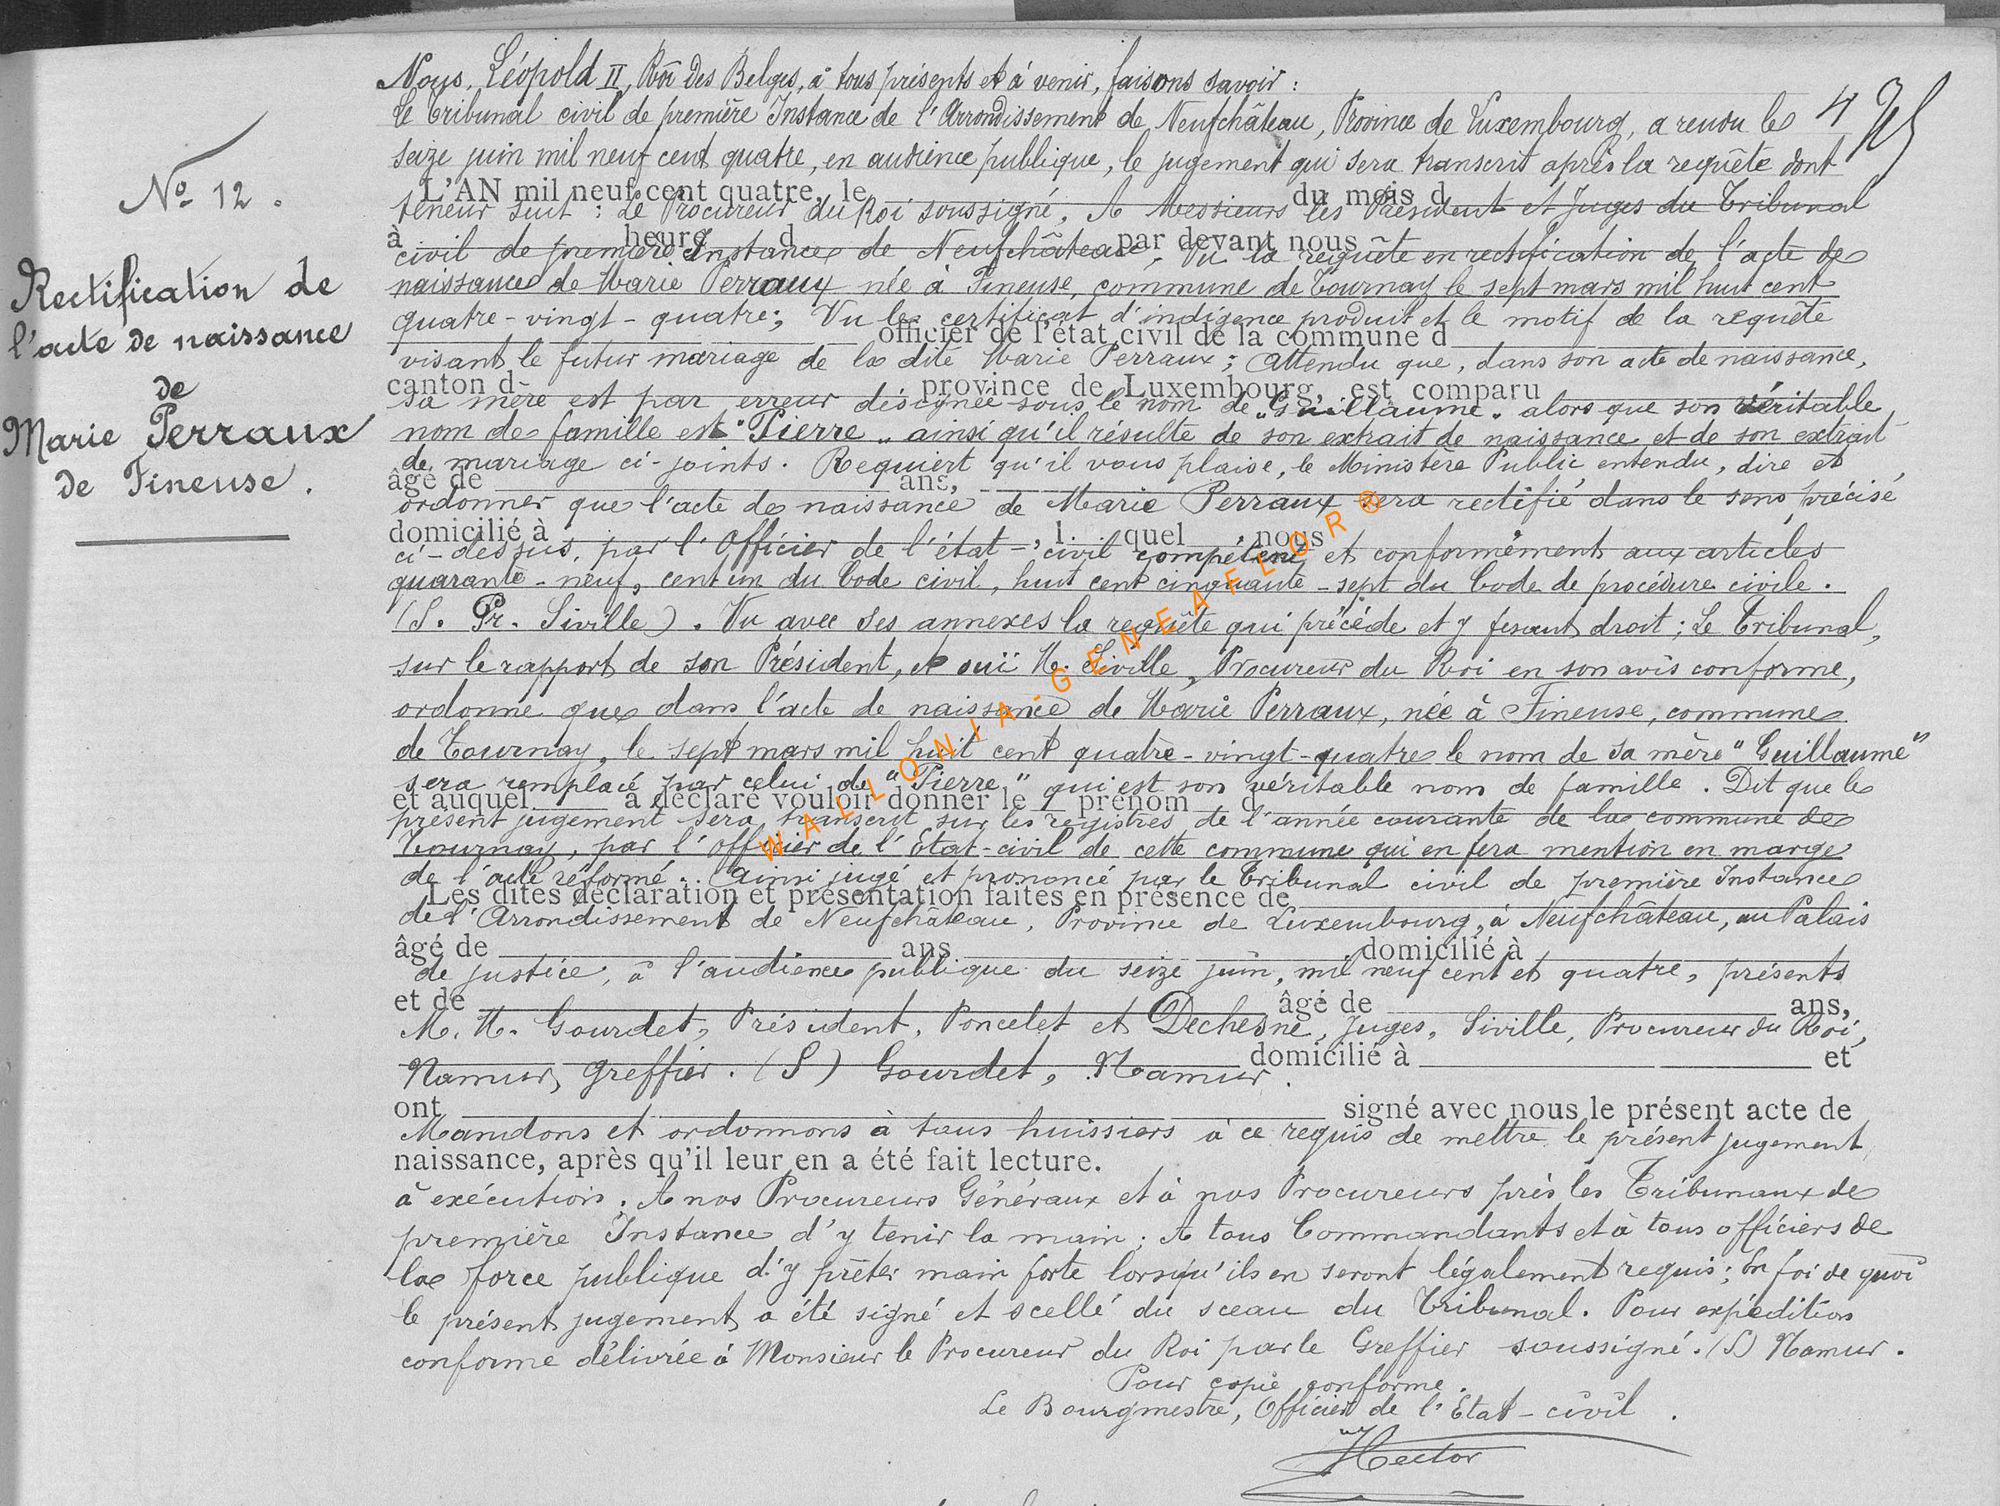 Nous, Léopold II, Roi des Belges, à tous présents et à venir, faisons savoir :
Le Tribunal civil de première Instance de l'Arrondissement de Neufchâteau, Province de Luxembourg, a rendu le
4
seize juin mil neuf cent quatre, en audience publique, le jugement qui sera transcrit après la requête dont
L'AN mil neuf cent quatre, le du mois d
teneur suit : Le Procureur du Roi soussigné, A Messieurs les Président et Juges du Tribunal
à heure d par devant nous
civil de première Instance de Neufchâteau, Vu la requête en rectification de l'acte de
naissance de Marie Perraux née à Fineuse, commune de Tournay le sept mars mil huit cent
quatre-vingt-quatre ; Vu le certificat d'indigence produit et le motif de la requête
officier de l'état civil de la commune d
visant le futur mariage de la dite Marie Perraux ; Attendu que, dans son acte de naissance,
canton d province de Luxembourg, est comparu
sa mère est par erreur désignée sous le nom de „Guillaume„ alors que son véritable
nom de famille est "Pierre„ ainsi qu'il résulte de son extrait de naissance et de son extrait
de mariage ci-joints. Requiert qu'il vous plaise, le Ministère Public entendu, dire et
âgé de ans,
ordonner que l'acte de naissance de Marie Perraux sera rectifié dans le sens précisé
domicilié à , l quel , nous
ci-dessus, par l'Officier de l'état-civil compétent et conformément aux articles
quarante-neuf, cent un du Code civil, huit cent cinquante-sept du Code de procédure civile.
(S. Pr. Siville). Vu avec ses annexes la requête qui précède et y fesant droit ; Le Tribunal,
sur le rapport de son Président, et ouï M. Siville, Procureur du Roi en son avis conforme,
ordonne que dans l'acte de naissance de Marie Perraux, née à Fineuse, commune
de Tournay, le sept mars mil huit cent quatre-vingt-quatre le nom de sa mère "Guillaume"
sera remplacé par celui de "Pierre" qui est son véritable nom de famille. Dit que le
et auquel a déclaré vouloir donner le prénom d
présent jugement sera transcrit sur les registres de l'année courante de la commune de
Tournay, par l'officier de l'Etat-civil de cette commune qui en fera mention en marge
de l'acte réformé. Ainsi jugé et prononcé par le Tribunal civil de première Instance
Les dites déclaration et présentation faites en présence de
de l'Arrondissement de Neufchâteau, Province de Luxembourg, à Neufchâteau, au Palais
âgé de ans domicilié à
de justice, à l'audience publique du seize juin, mil neuf cent et quatre, présents
et de âgé de ans,
M. M. Gourdet, Président, Poncelet et Dechesne, Juges, Siville, Procureur du Roi,
domicilié à et
Namur, Greffier. (S) Gourdet, Namur.
ont signé avec nous le présent acte de
Mandons et ordonnons à tous huissiers à ce requis de mettre le présent jugement
naissance, après qu'il leur en a été fait lecture.
à exécution. A nos Procureurs Généraux et à nos Procureurs près les Tribunaux de
première Instance d'y tenir la main ; A tous Commandants et à tous officiers de
la force publique d'y prêter main forte lorsqu'ils en seront légalement requis ; En foi de quoi
le présent jugement a été signé et scellé du sceau du Tribunal. Pour expédition
conforme délivrée à Monsieur le Procureur du Roi par le Greffier soussigné. (S) Namur.
Pour copie conforme.
Le Bourgmestre, Officier de l'Etat-civil.
Hector
No 12.
Rectification de
l'acte de naissance
de
Marie Perraux
de Fineuse.
WALLONIA-GENEAFLOR®